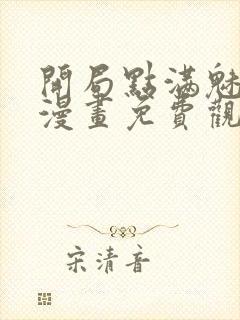 開局點滿魅
漫畫免費觀
宋清音